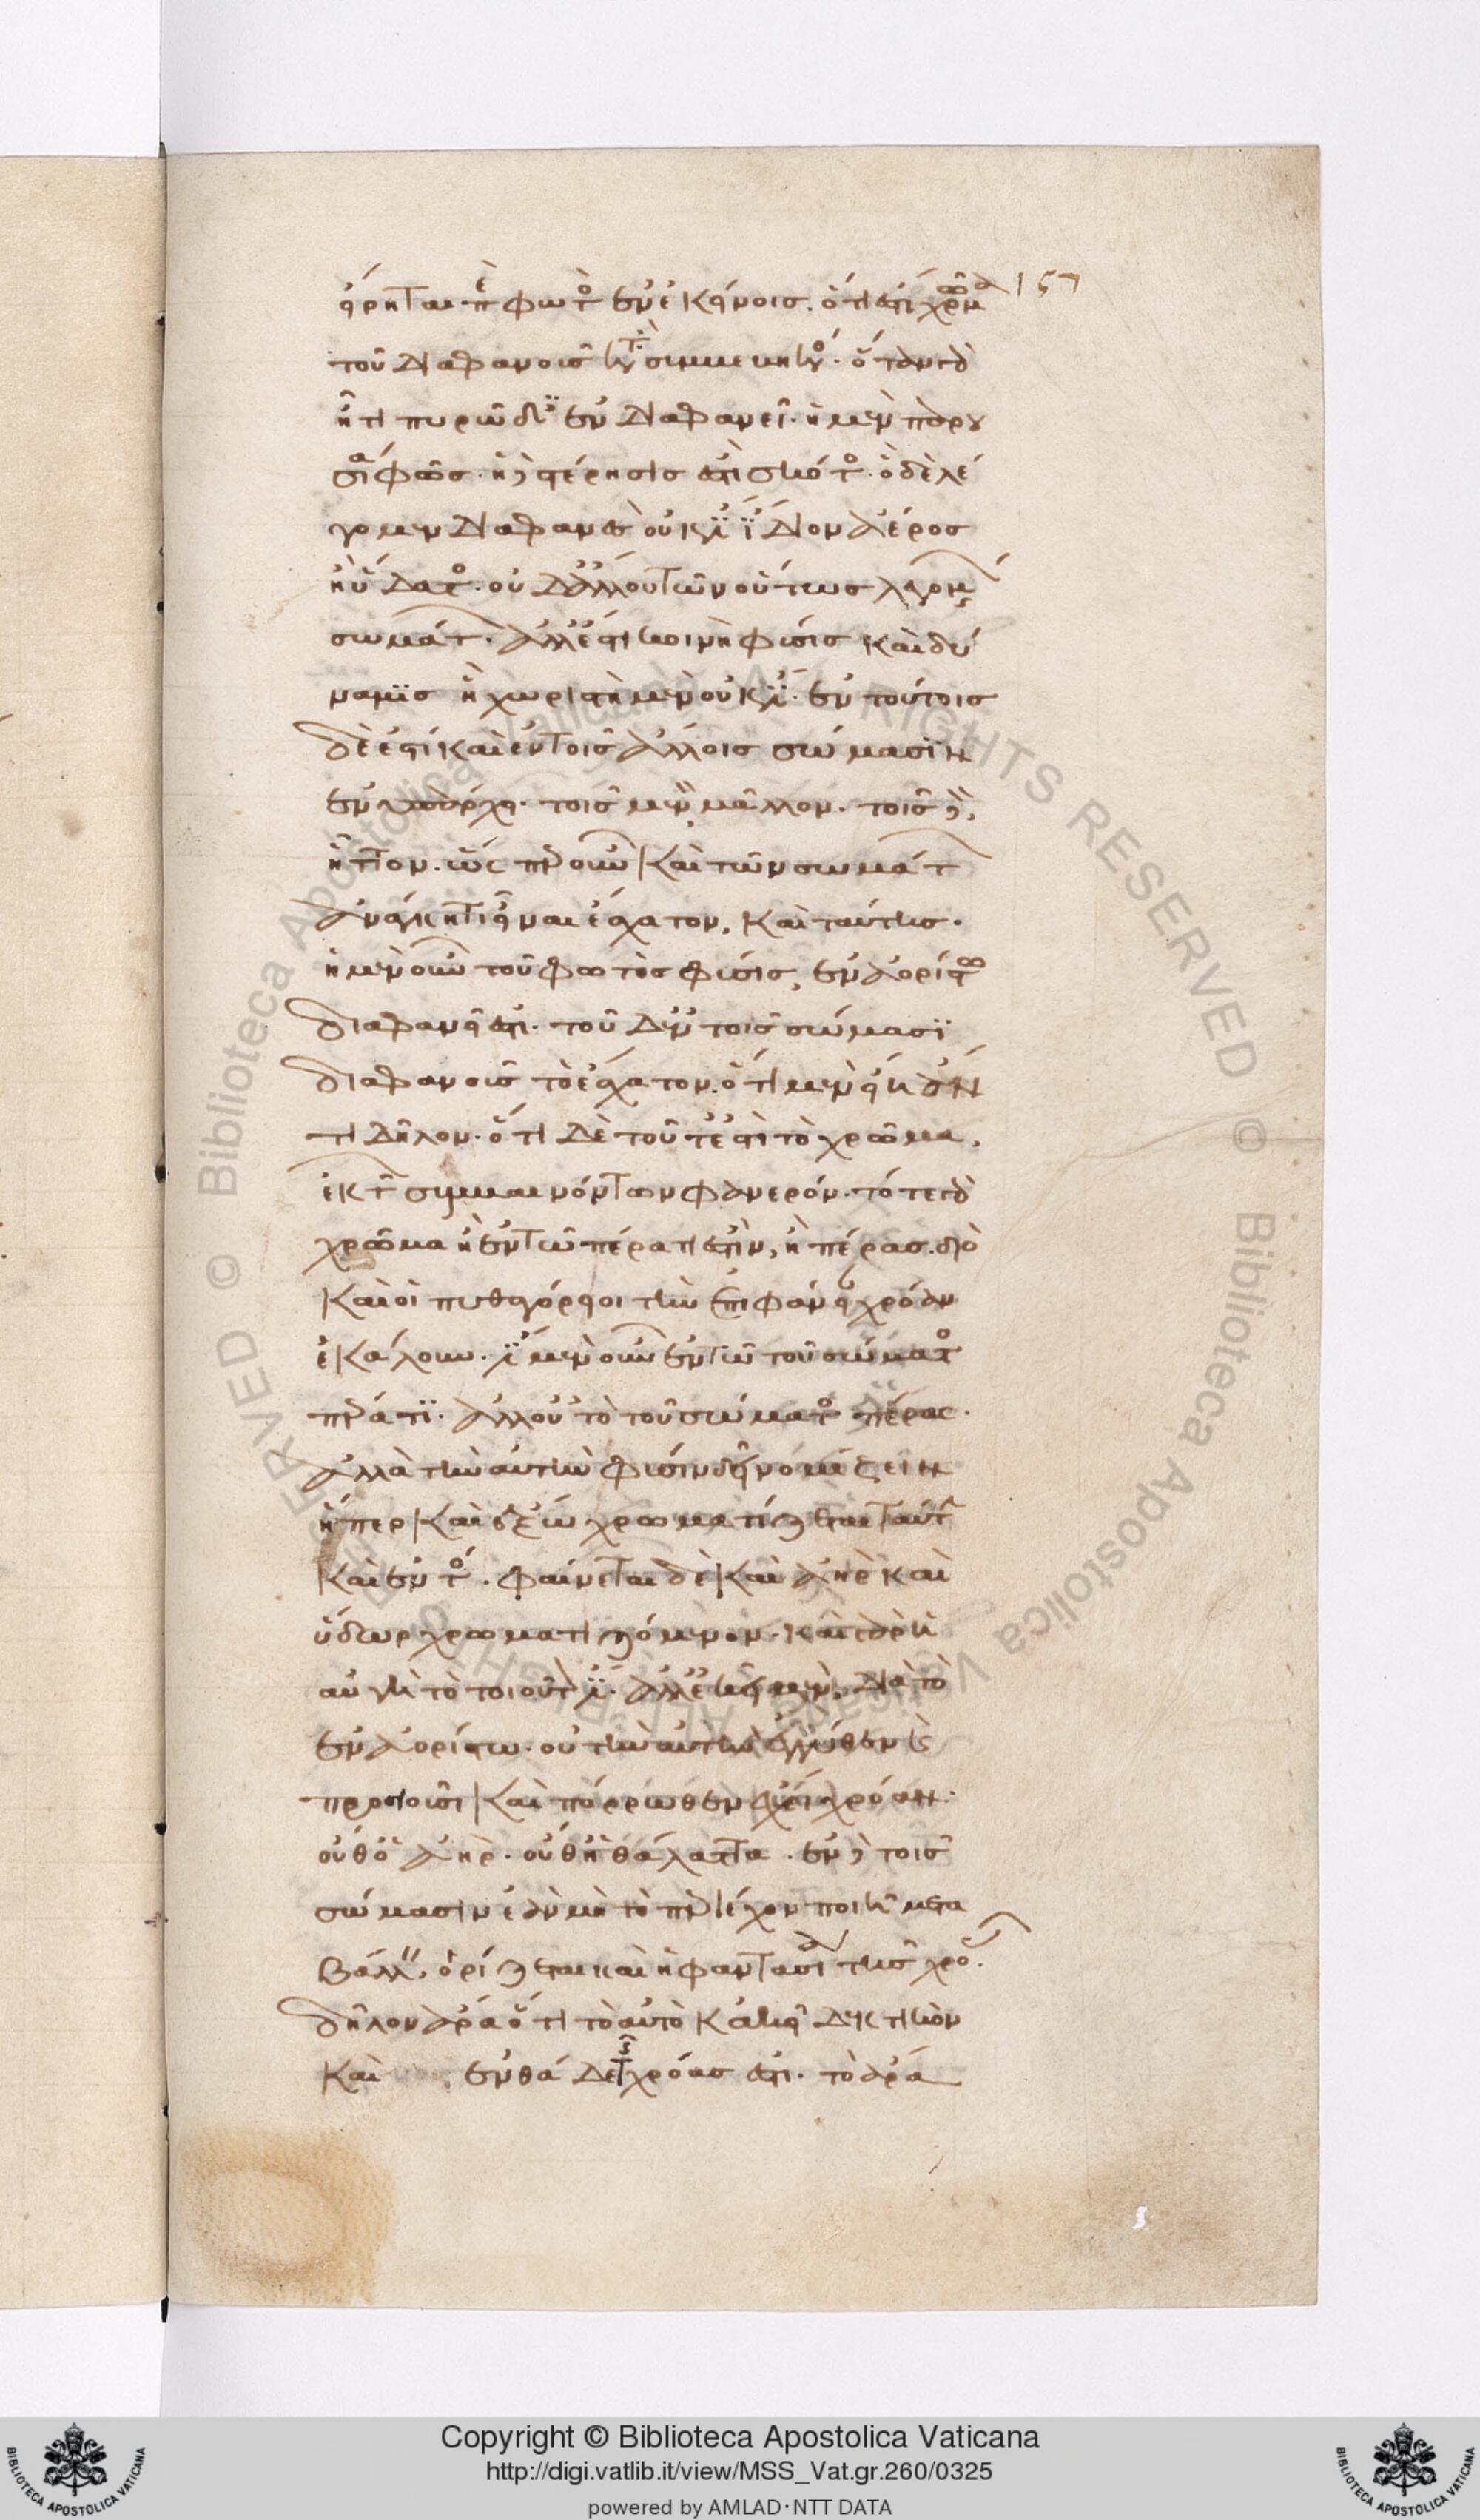 εἴρηται περὶ φωτὸς ἐν ἐκείνοις. ὅτι ἐστὶ χρῶμα 157
τοῦ διαφανοῦς κατὰ συμβεβηκός. ὅταν γὰρ
ᾖ τι πυρῶδες ἐν διαφανεῖ. ἡ μὲν παρου
σία φῶς. ἡ δὲ στέρησις ἐστὶ σκότος. ὃ δὲ λέ
γομεν διαφανὲς οὐκ ἔστιν ἴδιον ἀέρος
ἢ ὕδατος. οὐδ' ἄλλου τῶν οὕτως λεγομένων
σωμάτων. ἀλλ' ἔστι κοινὴ φύσις καὶ δύ
ναμις ἣ χωριστὴ μὲν οὐκ ἔστιν. ἐν τούτοις
δὲ ἐστὶ καὶ ἐν τοῖς ἄλλοις σώμασιν
ἐνυπάρχει. τοῖς μὲν μᾶλλον. τοῖς δὲ,
ἧττον. ὥσπερ οὖν καὶ τῶν σωμάτων
ἀνάγκη τι εἶναι ἔσχατον, καὶ ταύτης.
ἡ μὲν οὖν τοῦ φωτὸς φύσις, ἐν ἀορίστῳ
διαφανεῖ ἐστι. τοῦ δ' ἐν τοῖς σώμασι
διαφανοῦς τὸ ἔσχατον. ὅτι μὲν εἴη ἄν
τι δῆλον. ὅτι δὲ τοῦτ' ἐστὶ τὸ χρῶμα,
ἐκ τῶν συμβαινόντων φανερόν. τό τε γὰρ
χρῶμα ἢ ἐν τῷ πέρατι ἐστὶν, ἢ πέρας. διὸ
καὶ οἱ πυθαγόρειοι τὴν ἐπιφάνειαν χρόαν
ἐκάλουν. ἔστι μὲν οὖν ἐν τῷ τοῦ σώματος
πέρατι. ἀλλ' οὔ τὸ τοῦ σώματος πέρας.
ἀλλὰ τὴν αὐτὴν φύσιν δεῖ νομίζειν
ἥπερ καὶ ἔξω χρωματίζεται ταύτην
καὶ ἐντός. φαίνεται δὲ καὶ ἀὴρ καὶ
ὕδωρ χρωματιζόμενον. καὶ γὰρ ἡ
αὐγὴ τὸ τοιοῦτόν ἐστιν. ἀλλ' ἐκεῖ μὲν, διὰ τὸ
ἐν ἀορίστῳ. οὐ τὴν αὐτὴν ἐγγύθεν καὶ
προσιοῦσι καὶ πόρρωθεν ἔχει χρόαν.
οὔθ' ὁ ἀὴρ. οὔθ' ἡ θάλαττα. ἐν δὲ τοῖς
σώμασιν ἐὰν μὴ τὸ περιέχον ποιῇ μετα
βάλλειν, ὥρισται καὶ ἡ φαντασία τῆς χρόας.
δῆλον ἄρα ὅτι τὸ αὐτὸ κἀκεῖ δεκτικὸν
καὶ ἐνθάδε τῆς χρόας ἐστι. τὸ ἄρα
Copyright © Biblioteca Apostolica Vaticana
http://digi.vatlib.it/view/MSS_Vat.gr.260/0325
powered by AMLAD·NTT DATA